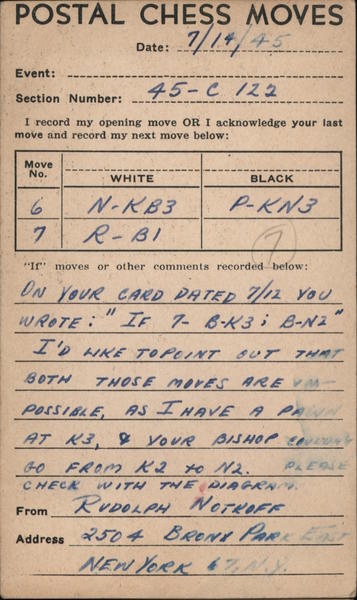 POSTAL CHESS MOVES
Date: 7/14/45
Event:
Section Number: 45-C 122
I record my opening move OR I acknowledge your last
move and record my next move below:
Move No. WHITE BLACK
6 N-KB3 P-KN3
7 R-B1
7
"If" moves or other comments recorded below:
ON YOUR CARD DATED 7/12 YOU
WROTE: "IF 7- B-K3; B-N2"
I'D LIKE TO POINT OUT THAT
BOTH THOSE MOVES ARE IM-
POSSIBLE, AS I HAVE A PAWN
AT K3, & YOUR BISHOP COULDN'T
GO FROM K2 TO N2. PLEASE
CHECK WITH THE DIAGRAM.
From RUDOLPH NOTKOFF
Address 2504 BRONX PARK EAST
NEW YORK 67, N.Y.